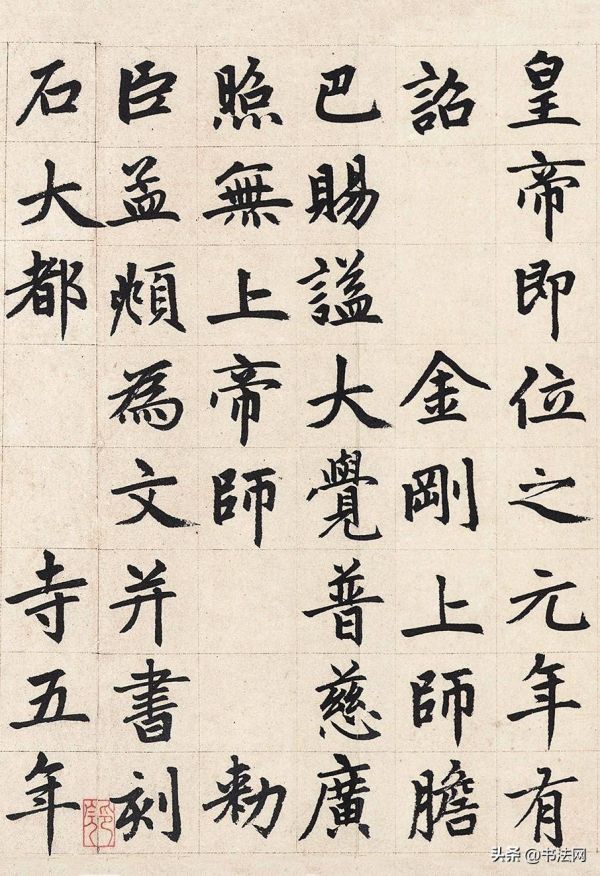 皇帝即位之元年有
詔 金剛上師膽
巴賜謚大覺普慈廣
照無上帝師 勅
臣孟頫為文并書刻
石大都 寺五年
头条 @书法网